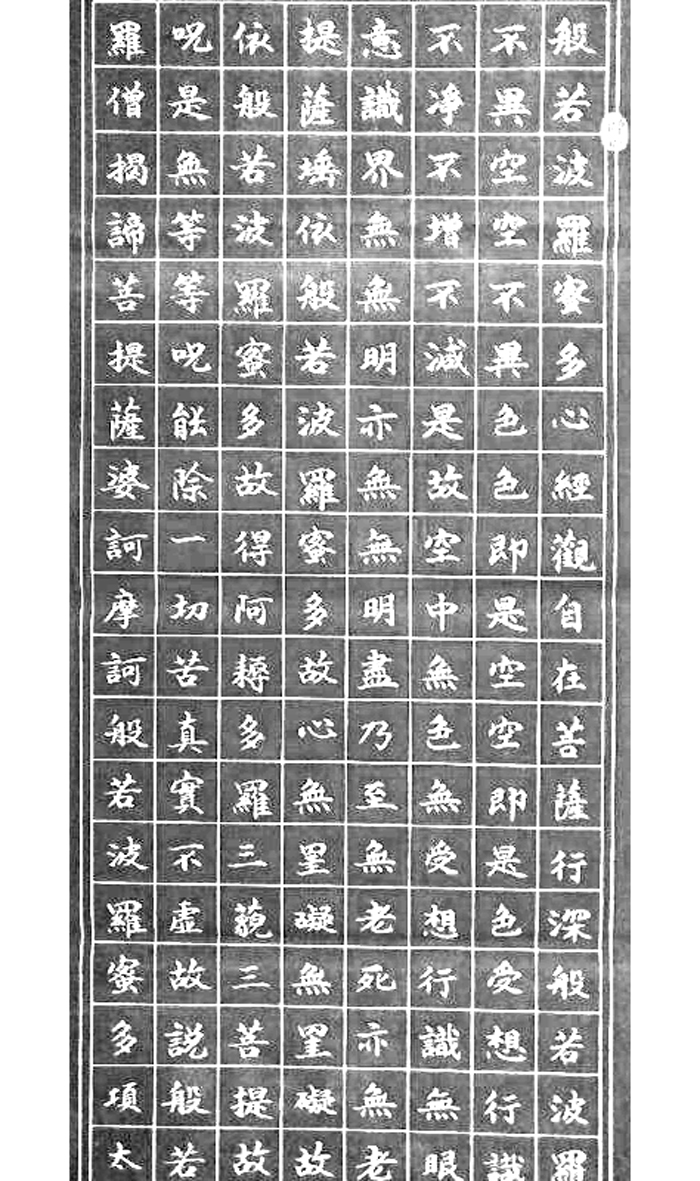 般若波羅蜜多心經觀自在菩薩行深般若波羅
不異空空不異色色即是空空即是色受想行識
不淨不增不減是故空中無色無受想行識無眼
意識界無無明亦無無明盡乃至無老死亦無老
提薩埵依般若波羅蜜多故心無罣礙無罣礙故
依般若波羅蜜多故得阿耨多羅三藐三菩提故
呪是無等等呪能除一切苦真實不虛故説般若
羅僧揭諦菩提薩婆訶摩訶般若波羅蜜多項太